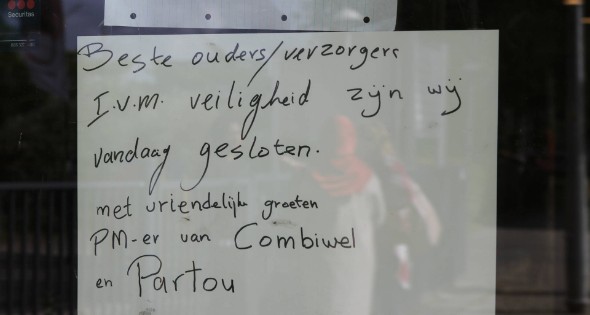 Securitas
Beste ouders/verzorgers
I.v.m. veiligheid zijn wij
vandaag gesloten.
met vriendelijke groeten
PM-er van Combiwel
en Partou